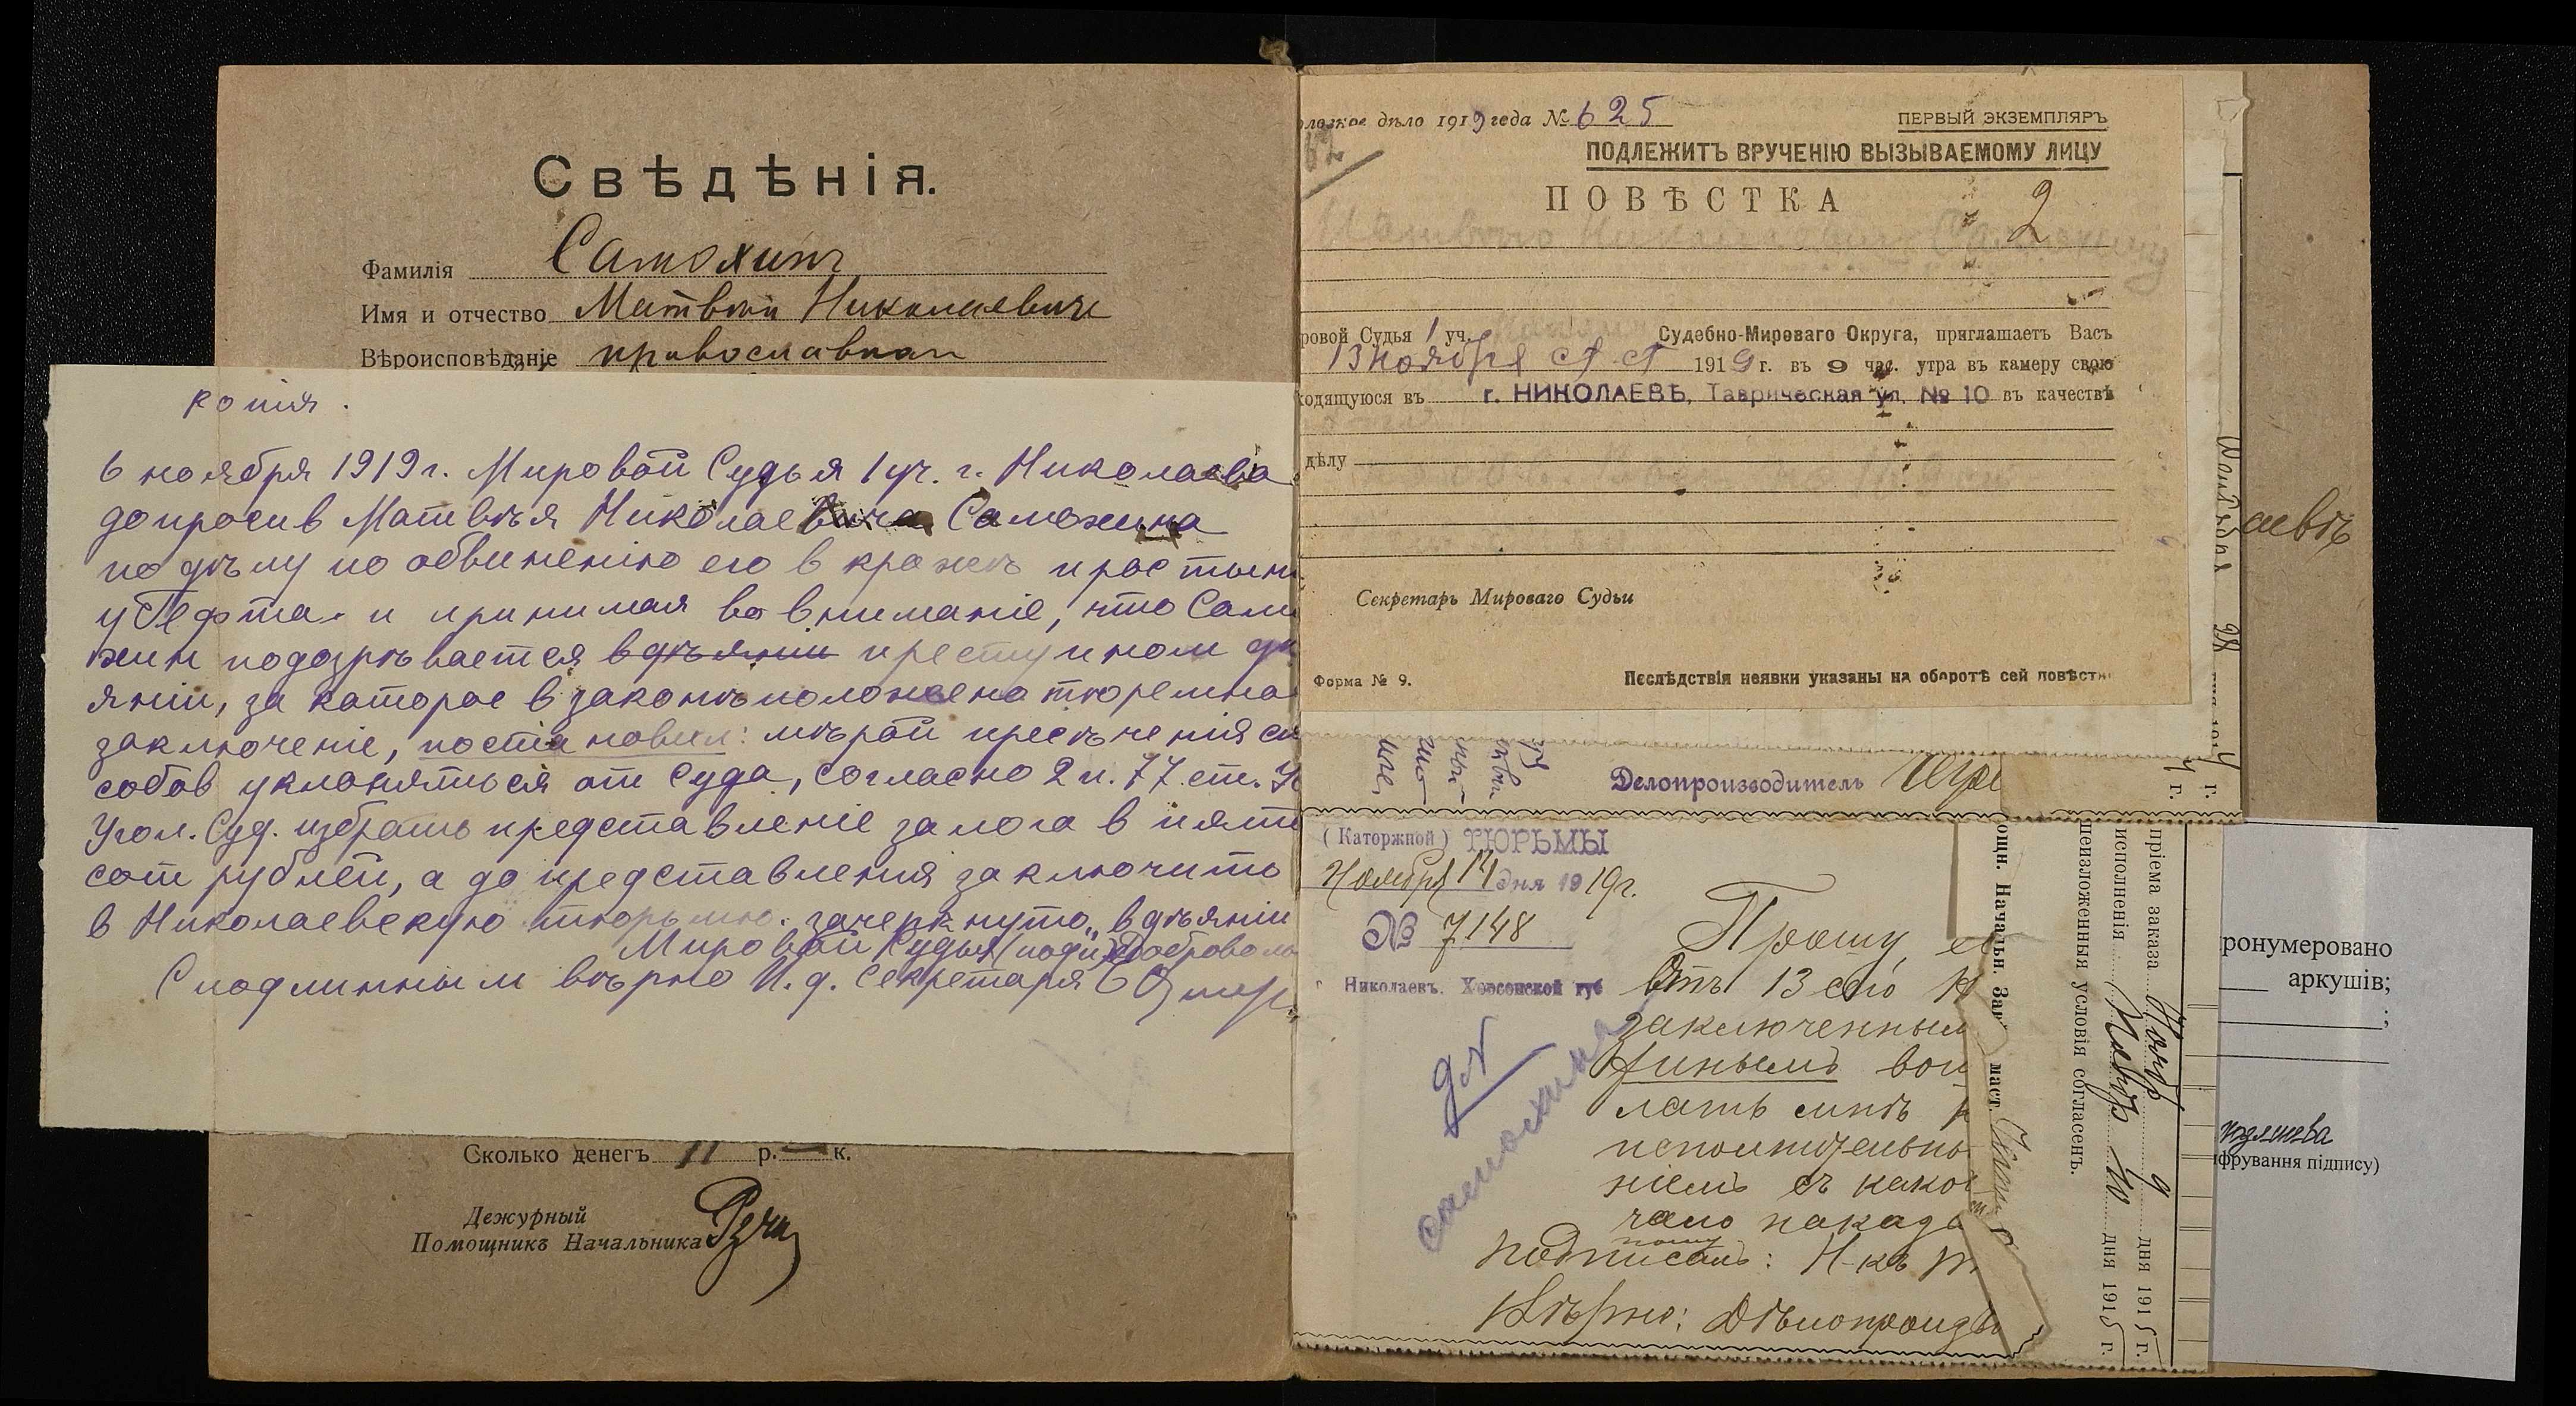 Свѣдѣнія.
Фамилія Самохинъ
Имя и отчество Матвѣй Николаевичъ
Вѣроисповѣданіе православная
копія.
6 ноября 1919 г. Мировой Судья 1 уч. г. Николаева
допросив Матвѣя Николаевича Самохина
по дѣлу по обвиненію его в кражѣ простын
у и принимая во вниманіе, что Само
хин подозрѣвается в дѣяніи преступном дѣ
яніи, за которое в законѣ положено тюремна
заключеніе, постановил: мѣрой пресѣченія сп
собов уклоняться от Суда, согласно 2 п. 77 ст. Ус
Угол. Суд. избрать представленіе залога в пять
сот рублей, а до представленія заключить
в Николаевскую тюрьму. зачеркнуто „в дѣяніи
Мировой Судья (подп) Доброволь
С подлинным вѣрно И. д. Секретаря
Сколько денегъ 11 р. — к.
Дежурный
Помощникъ Начальника
дѣло 1919 года № 625
ПЕРВЫЙ ЭКЗЕМПЛЯРЪ
ПОДЛЕЖИТЪ ВРУЧЕНІЮ ВЫЗЫВАЕМОМУ ЛИЦУ
ПОВѢСТКА
2
ровой Судья 1 уч. Судебно-Мироваго Округа, приглашаетъ Васъ
13 ноября ст ст 1919 г. въ 9 час. утра въ камеру свою
ходящуюся въ г. НИКОЛАЕВЪ, Таврическая ул. № 10 въ качествѣ
дѣлу
Секретарь Мироваго Судьи
Форма № 9. Послѣдствія неявки указаны на оборотѣ сей повѣстк
Делопроизводитель
(Каторжной) ТЮРЬМЫ
Ноября 14 дня 1919 г.
№ 7148
г Николаевъ. Херсонской губ
Самохина
Прошу,
Отъ 13 сего Н
заключенным
хинымъ
лать мнѣ
исполнительно
ніемъ съ како
чало наказа
Подписалъ: Н-къ
Вѣрно: Дѣлопроизв
ощн. Начальн. Зав маст.
неизложенныя условія согласенъ.
исполненія Ноябр 10 дня 1915 г.
пріема заказа Нояб 9 дня 1915 г.
аевѣ
ронумеровано
аркушів;
;
фрування підпису)